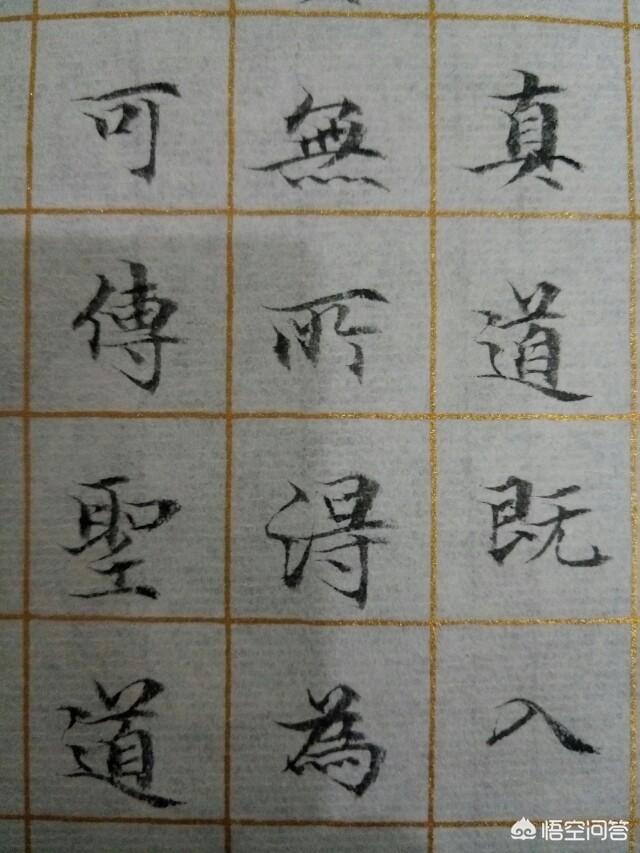 真道既入
無所得為
可傳聖道
悟空问答